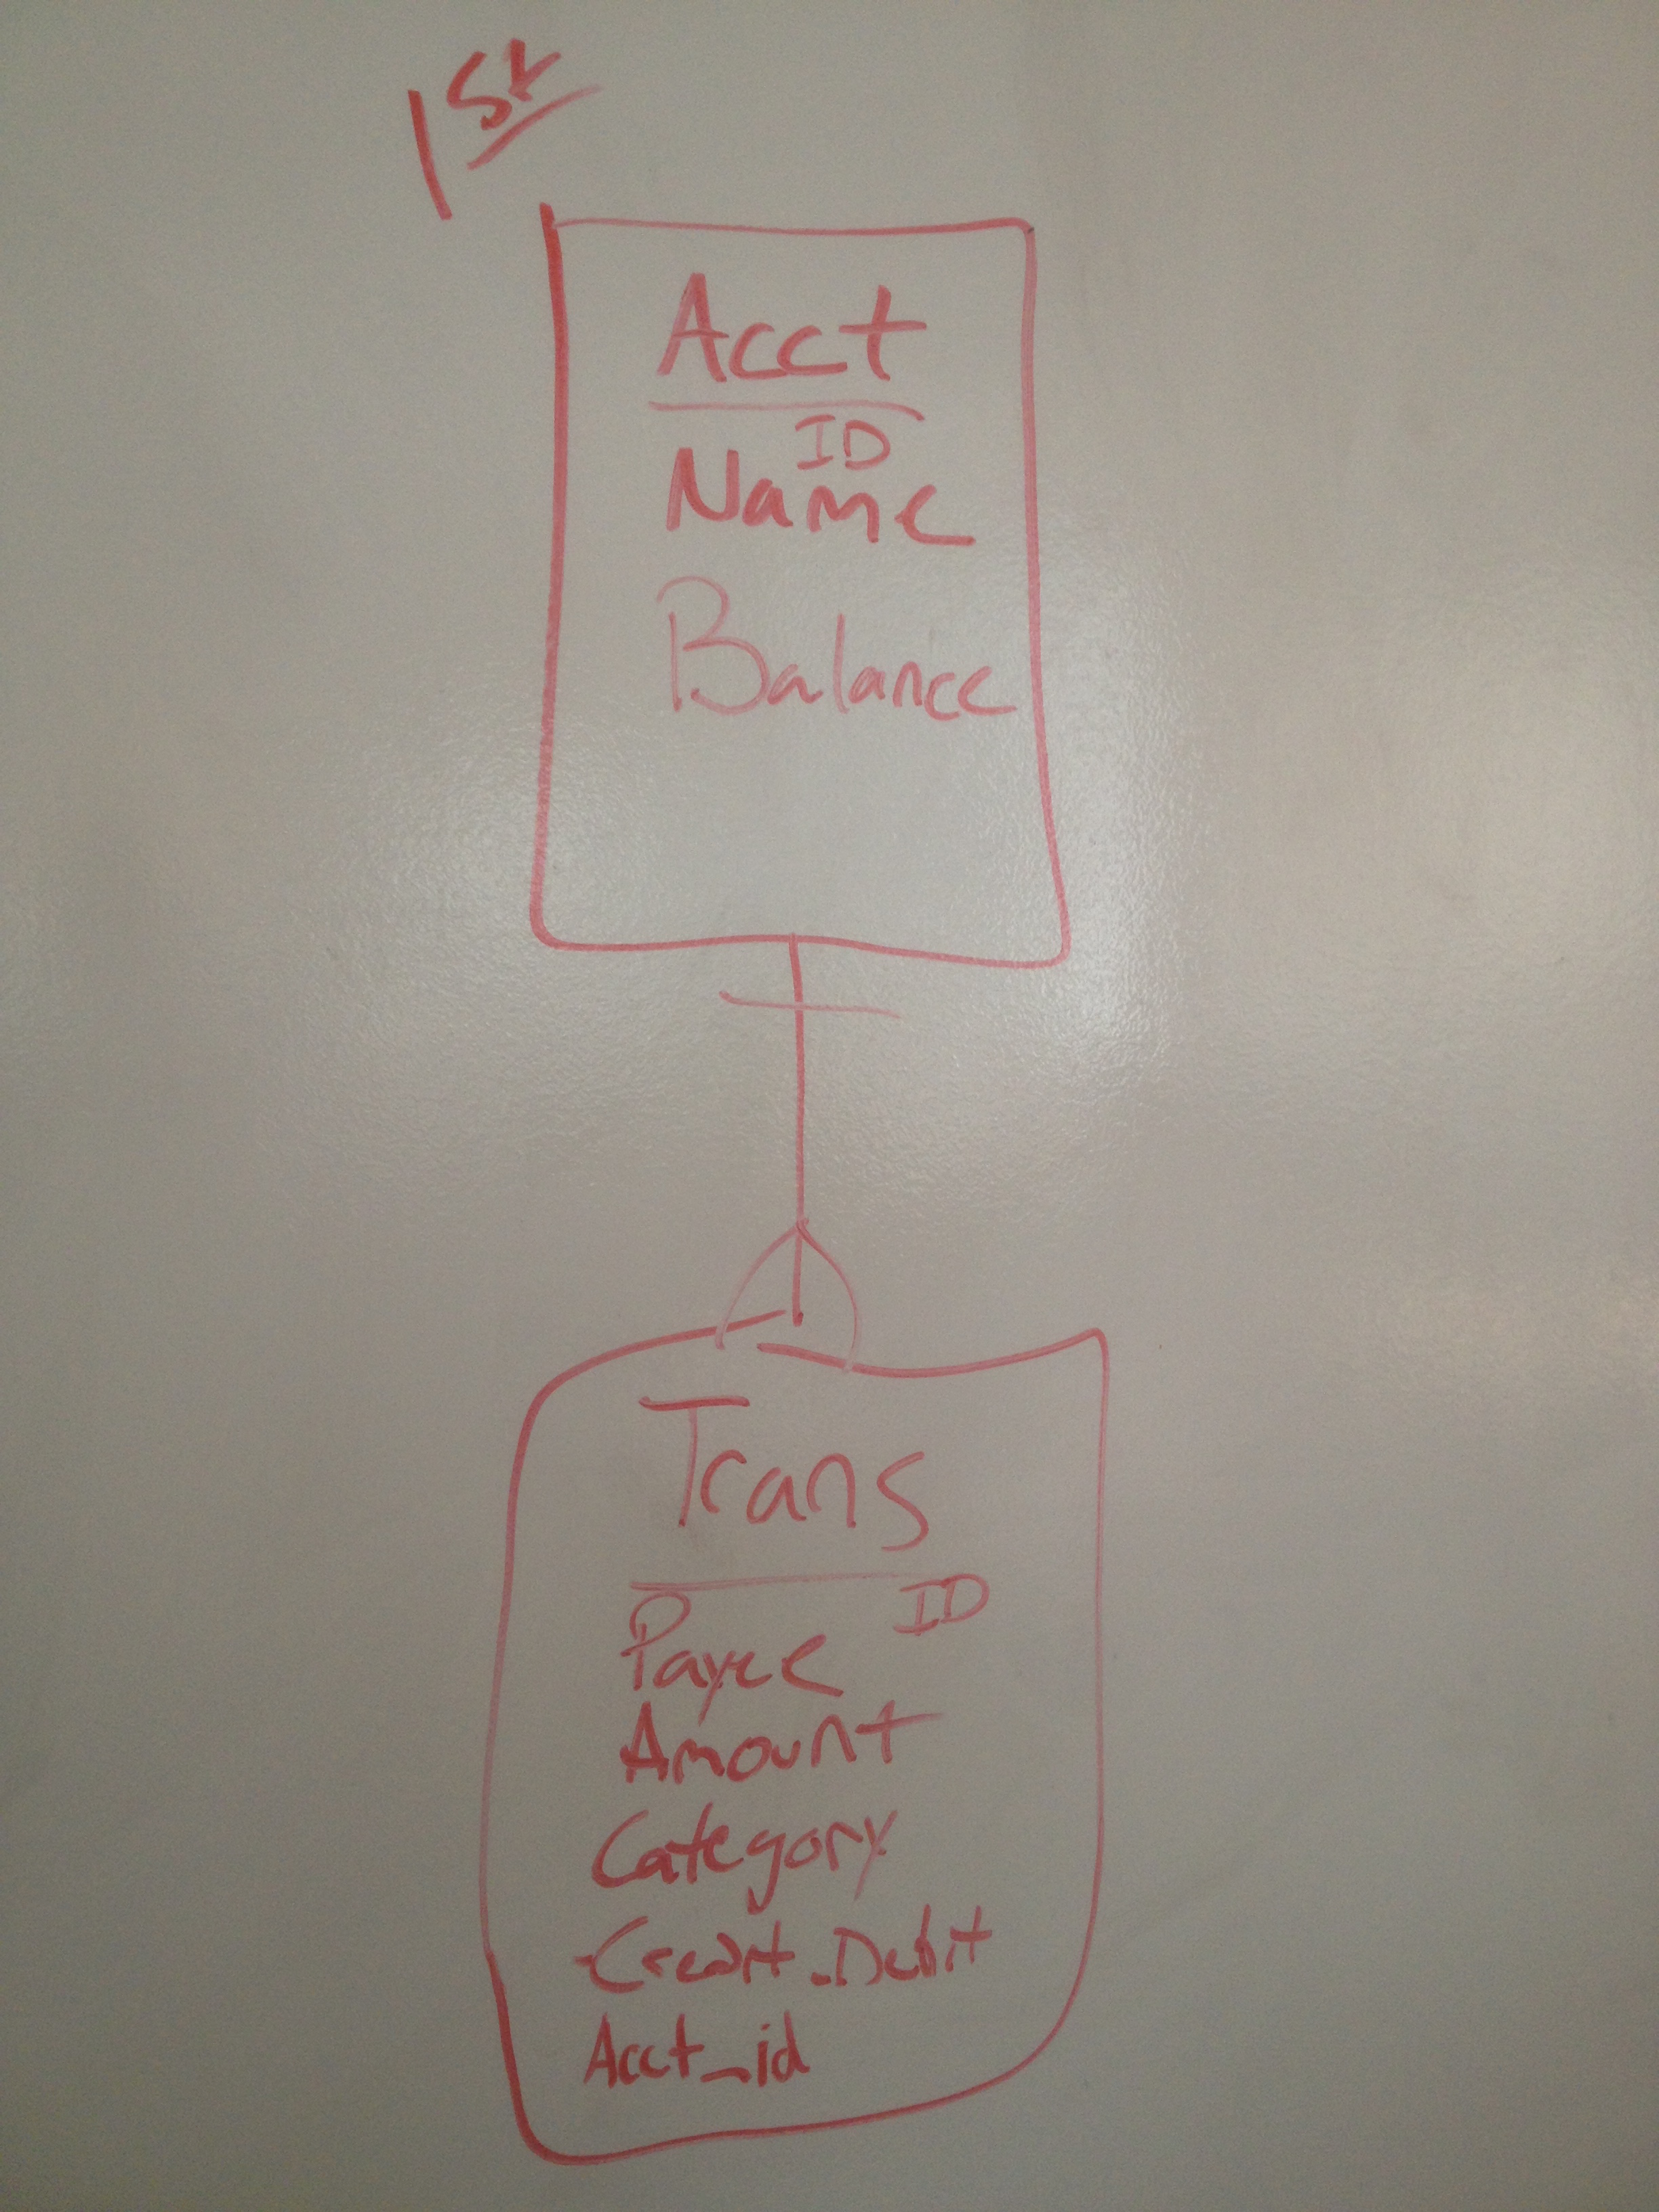 1st
Acct
ID
Name
Balance
Trans
ID
Payee
Amount
Category
-Credit_Debit
Acct_id